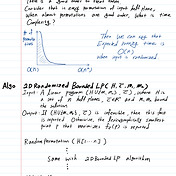 Consider that is every permutation of input half plane,
When about permutations are good order, when is time
Complexity?
# of
Permutations
O(n)
O(n²)
Then we can say that
Expected running time is
O(n)
when input is randomized
Also 2D Randomized Bounded LPC (H, c, m₁, m₂)
Input: A linear program (H ∪ {m₁, m₂}, c), where H is
a set of n half planes, c ∈ R² and m₁, m₂ bound
the solution.
Output: If (H ∪ {m₁, m₂}, c) is infeasible, then this fact
is reported. Otherwise, the lexicographically smallest
point p that maximizes fc(p) is reported
Random Permutation (H[1...n])
Same with 2D Bounded LP algorithm